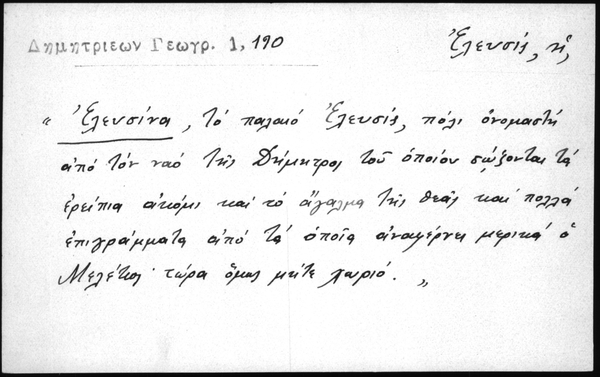 Δημητριεων Γεωγρ. 1, 190
Ἐλευσίς, ἡ,
« Ἐλευσίνα, τό παλαιό Ἐλευσίς, πόλι ὀνομαστή
ἀπό τόν ναό τῆς Δήμητρος τοῦ ὁποίου σῴζονται τά
ἐρείπια ἀκόμι καί τό ἄγαλμα τῆς θεᾶς καί πολλά
ἐπιγράμματα ἀπό τά ὁποῖα ἀναφέρνει μερικά ὁ
Μελέτιος· τώρα ὅμως μήτε χωριό. »